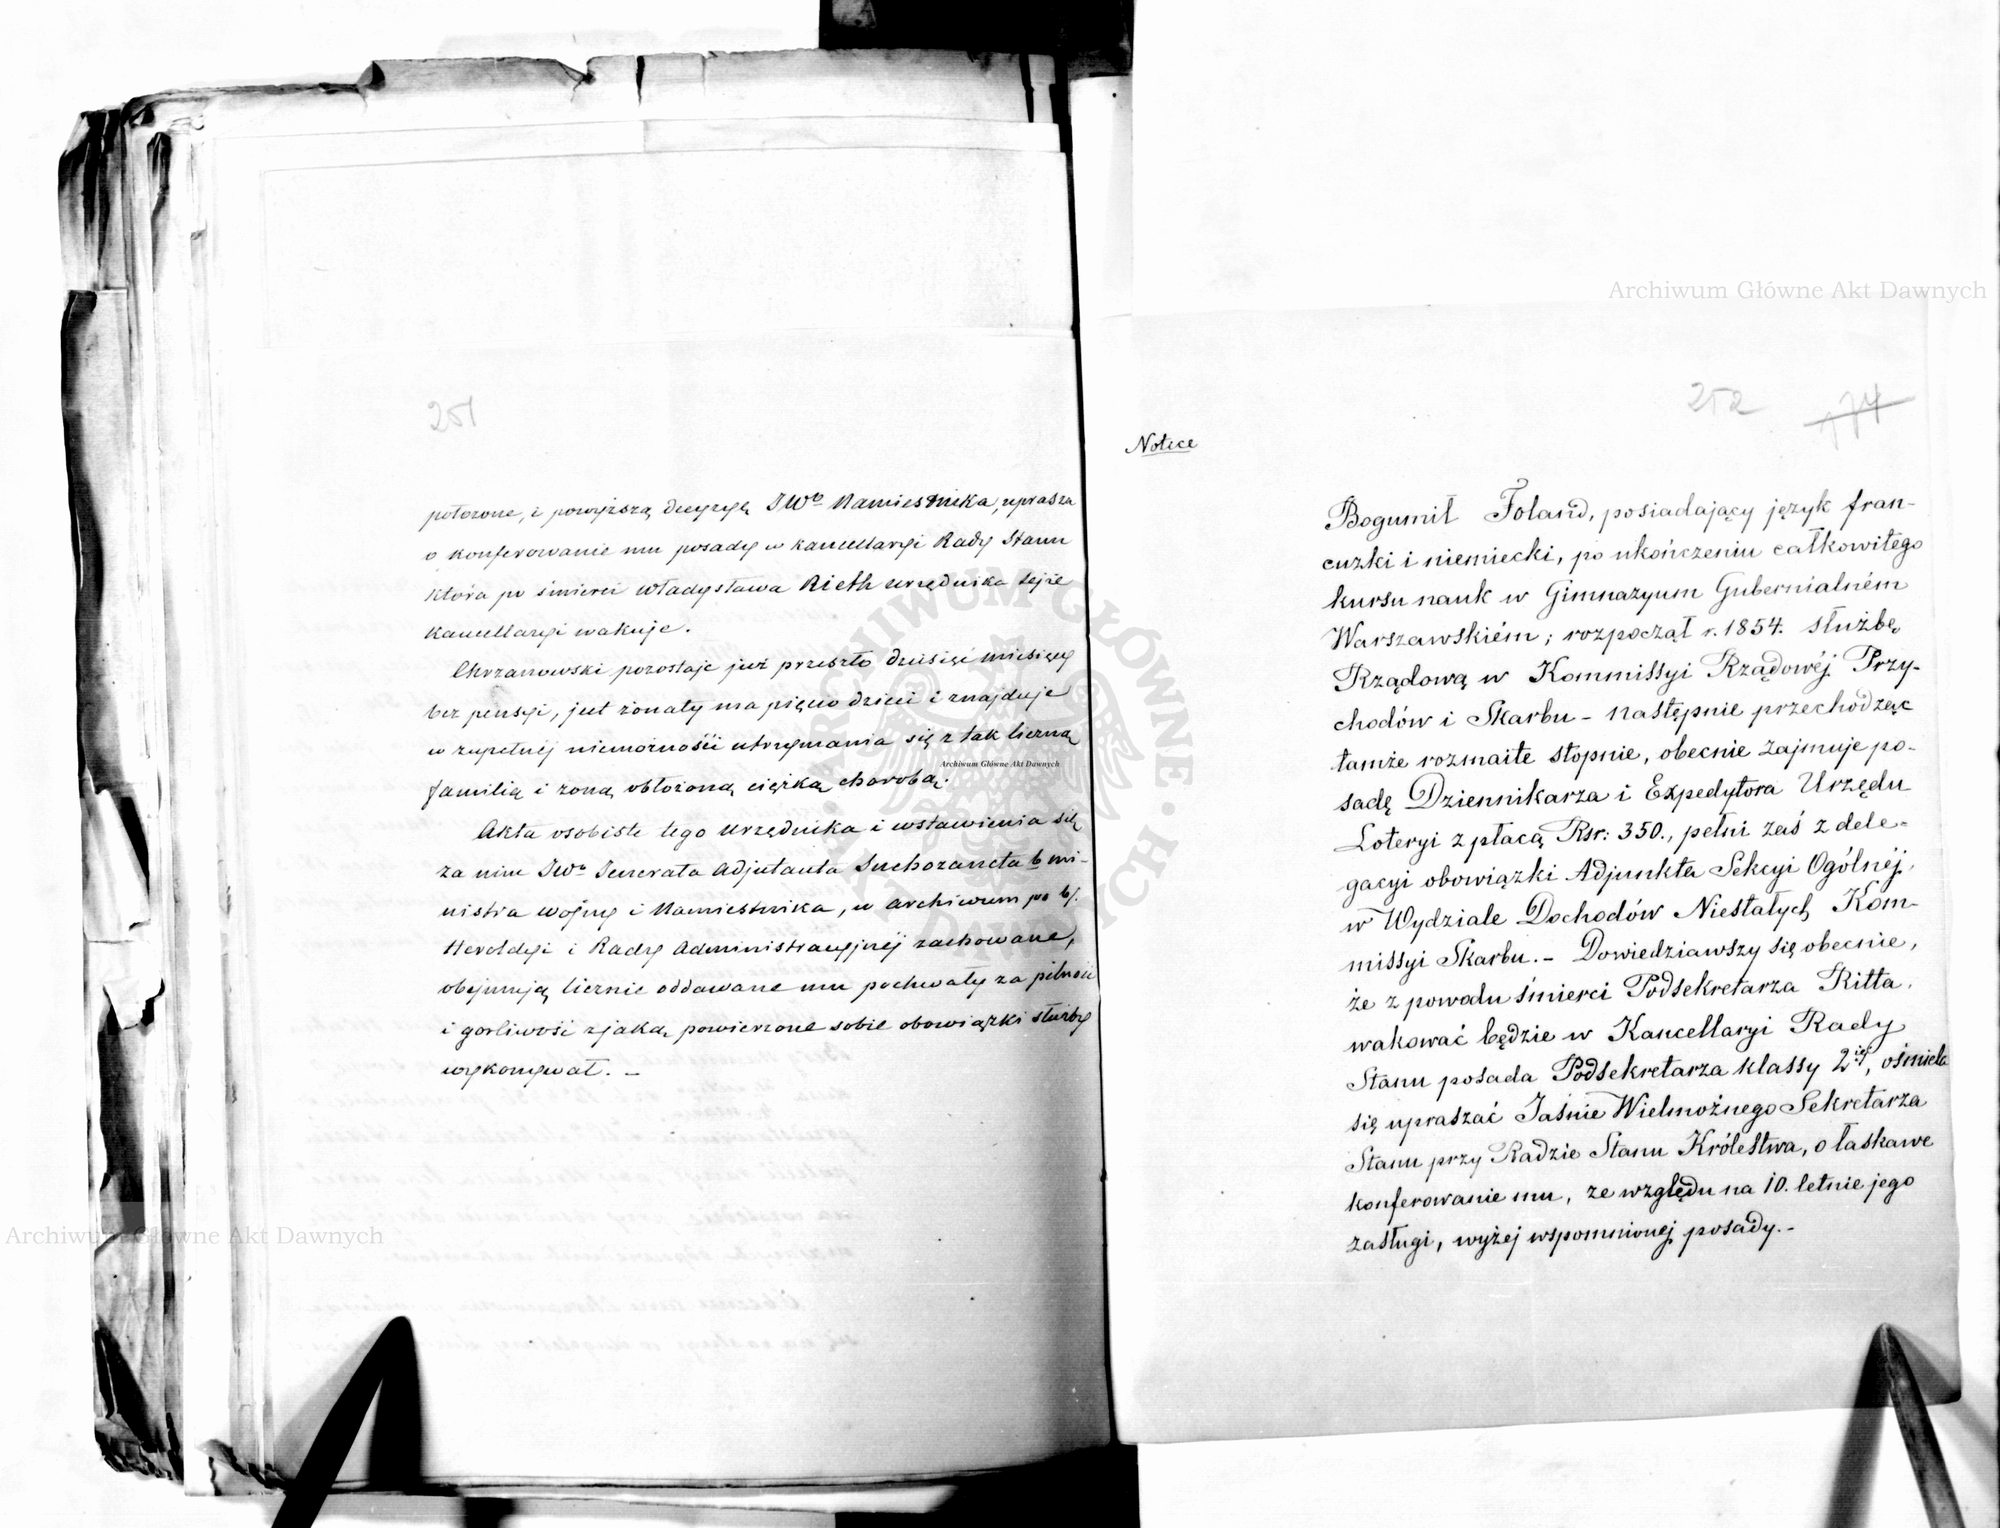 251
położone, i powyższą decyzyę JWo Namiestnika, uprasza
o konferowanie mu posady w kancellaryi Rady Stanu
która po śmierci Władysława Rieth urzędnika tejże
kancellaryi wakuje.
Chrzanowski pozostaje już przeszło dziesięć miesięcy
bez pensyi, jest żonaty ma pięcio dzieci i znajduje
w zupełnéj niemożności utrzymania się z tak liczną
familią i żoną obłożoną ciężką chorobą.
Akta osobiste tego urzędnika i wstawienia się
za nim JWo Jenerała Adjutanta Suchozaneta b mi-
nistra wojny i Namiestnika, w archiwum po b/.
Heroldyi i Rady Administracyjnéj zachowane,
obejmują licznie oddawane mu pochwały za pilność
i gorliwość z jaką powierzone sobie obowiązki służby
wykonywał. –
252 174
Notice
Bogumił Foland, posiadający język fran-
cuzki i niemiecki, po ukończeniu całkowitego
kursu nauk w Gimnazyum Gubernialném
Warszawskiém; rozpoczął r. 1854. służbę
Rządową w Kommissyi Rządowéj Przy-
chodów i Skarbu – następnie przechodząc
tamże rozmaite stopnie, obecnie zajmuje po-
sadę Dziennikarza i Expedytora Urzędu
Loteryi z płacą Rsr: 350., pełni zaś z dele-
gacyi obowiązki Adjunkta Sekcyi Ogólnéj,
w Wydziale Dochodów Niestałych Kom-
missyi Skarbu. – Dowiedziawszy się obecnie,
że z powodu śmierci Podsekretarza Ritta,
wakować będzie w Kancellaryi Rady
Stanu posada Podsekretarza klassy 2iéj, ośmiela
się upraszać Jaśnie Wielmożnego Sekretarza
Stanu przy Radzie Stanu Królestwa, o łaskawe
konferowanie mu, ze względu na 10. letnie jego
zasługi, wyżej wspomnionej posady. –
Archiwum Główne Akt Dawnych
Archiwum Główne Akt Dawnych
Archiwum Główne Akt Dawnych
ARCHIWUM GŁÓWNE AKT DAWNYCH